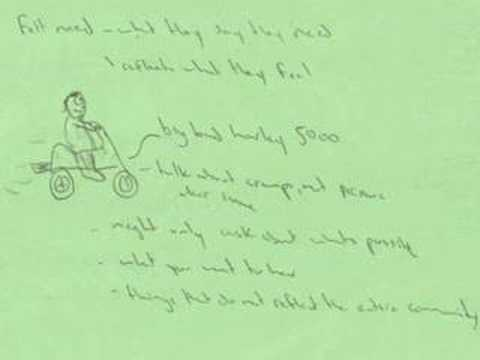 felt need - what they say they need
reflects what they feel
big bad harley 5000
- talk about cramps, not
- might only ask about what's possible
- what you want to hear
- things that do not reflect the entire community